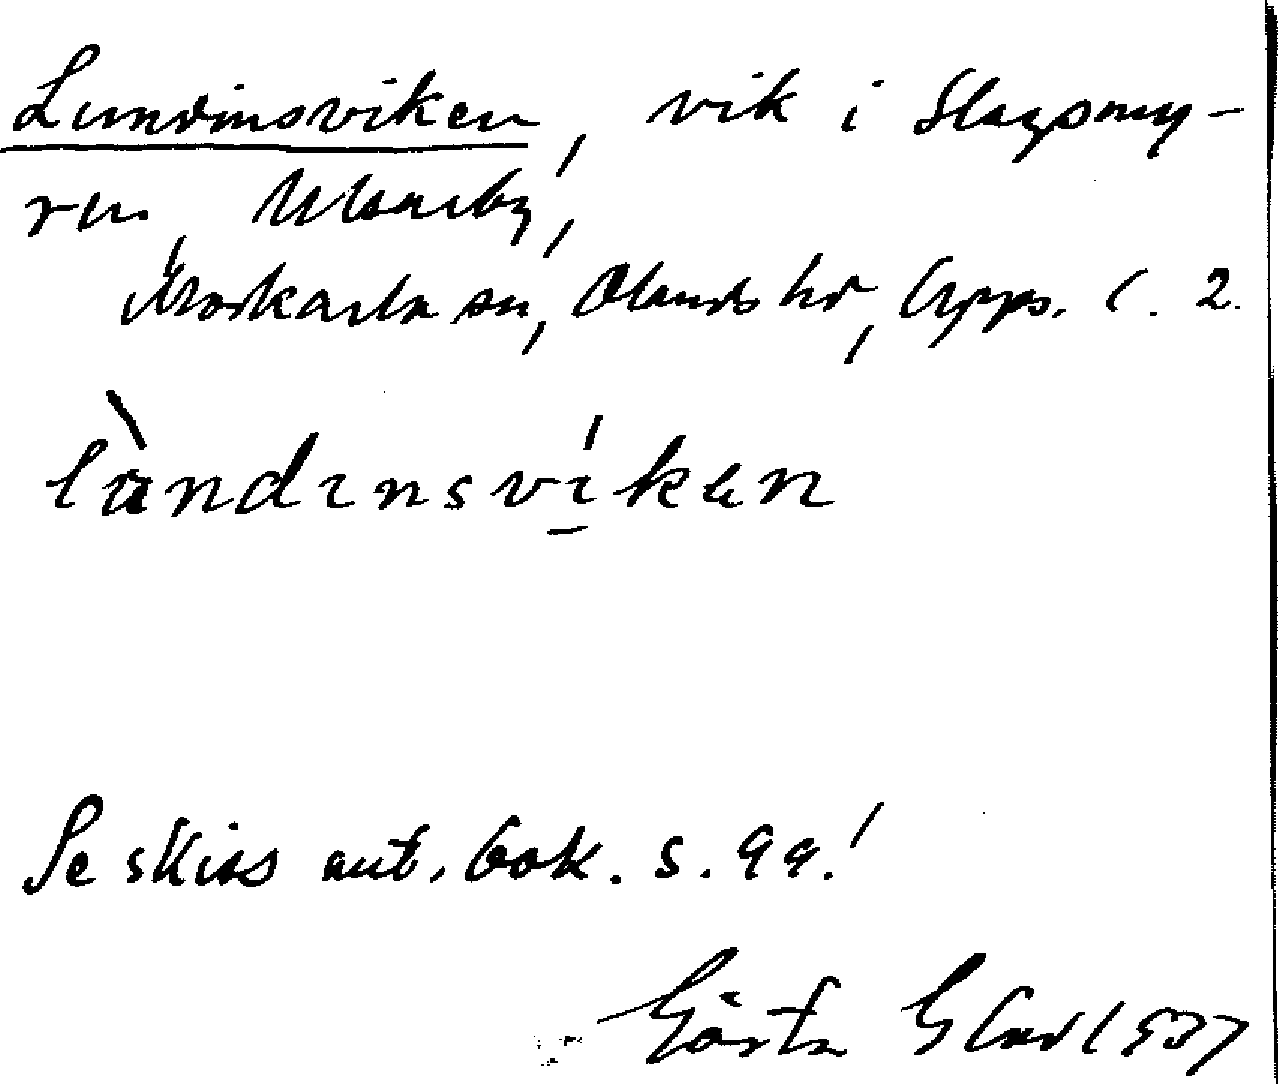 Lundinsviken, vik i Slagsmy-
ren, Ulvarby,
Morkarla sn, Olands hd, Upps. l. 2.
lùndinsvíken
Se skiss ant. bok. s. 99!
Gösta Glad 1937